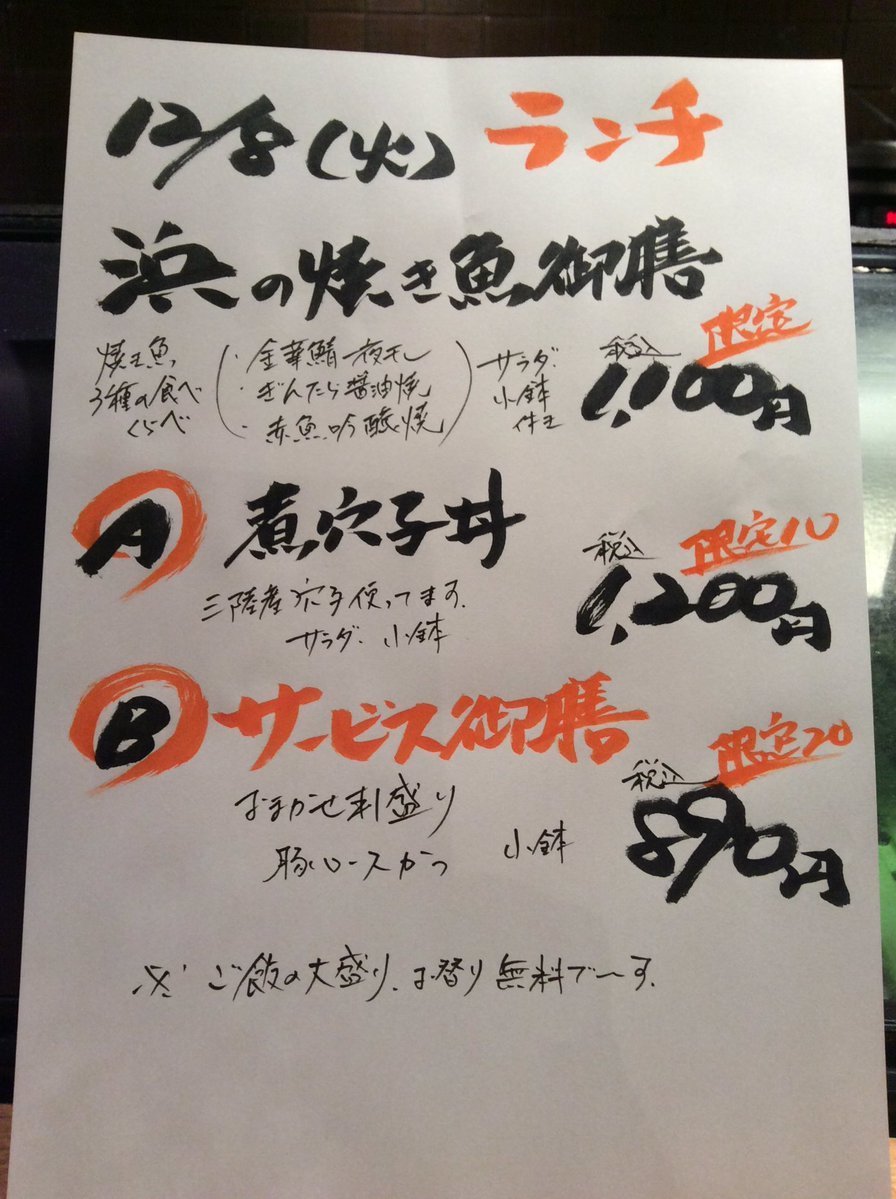 12/8(火) ランチ
浜の焼き魚御膳
限定
焼き魚
3種の食べ
くらべ
・金華鯖一夜干し
・ぎんだら醤油焼
・赤魚吟醸焼
サラダ・
小鉢
付き
税込
1,100円
A 煮穴子丼
限定10
三陸産穴子使ってます。
サラダ・小鉢
税込
1,200円
B サービス御膳
限定20
おまかせ刺盛り
豚ロースかつ
小鉢
税込
890円
※ ご飯の大盛り、お替り無料で〜す。